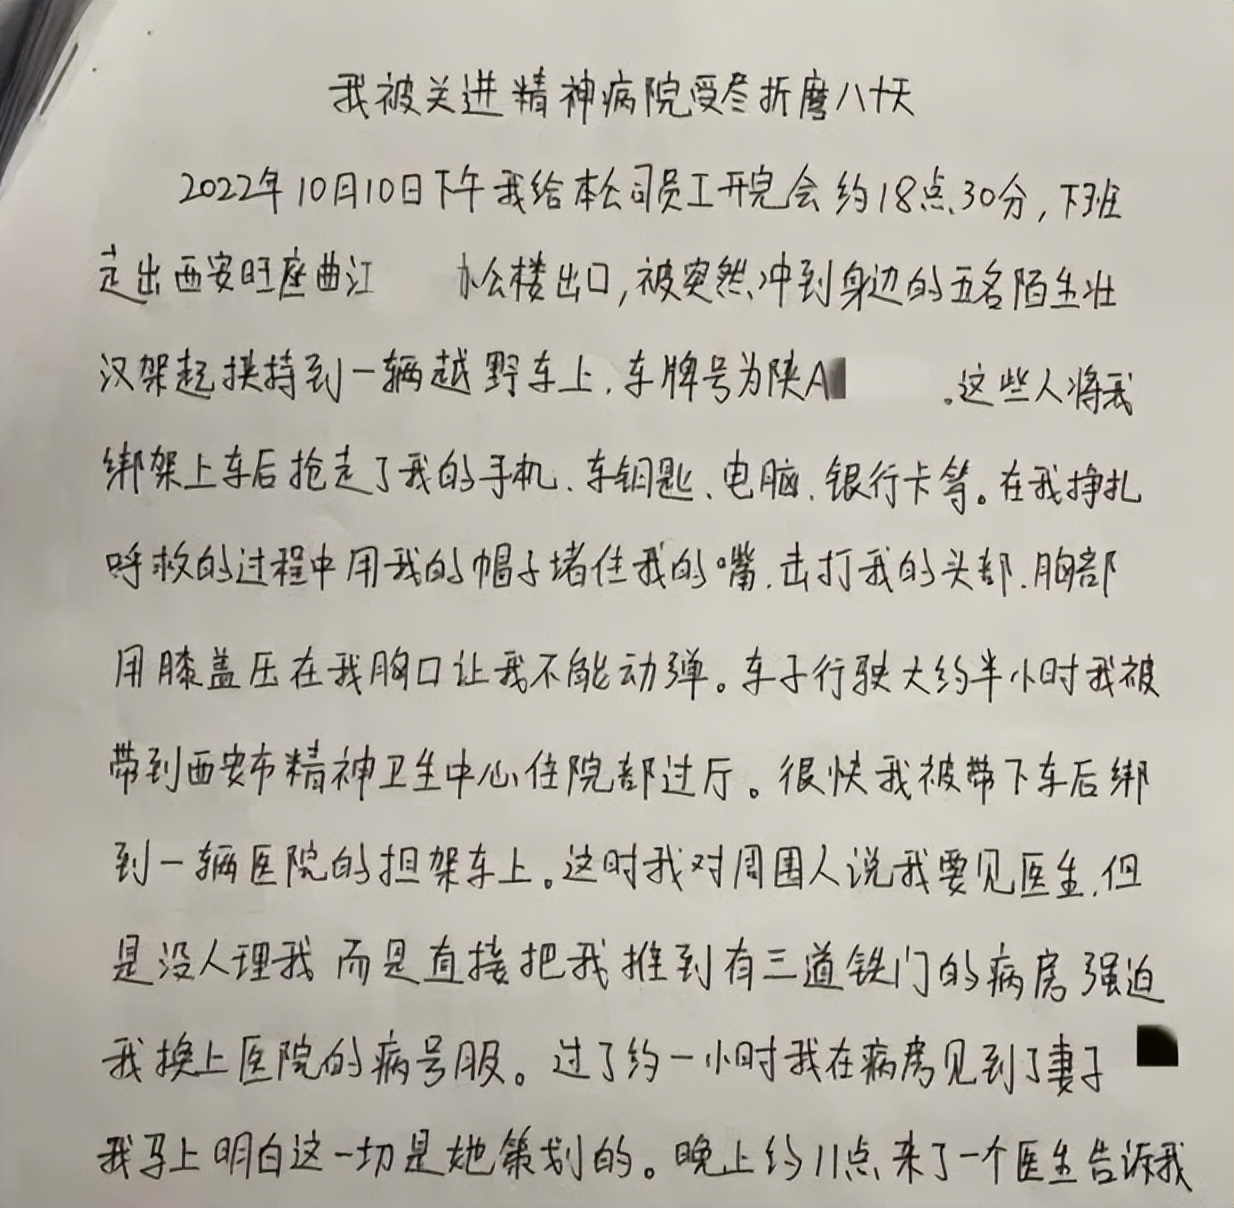 我被关进精神病院受尽折磨八十天
2022年10月10日下午我给本公司员工开完会约18点30分,下班
走出西安旺座曲江 办公楼出口,被突然冲到身边的五名陌生壮
汉架起挟持到一辆越野车上,车牌号为陕A .这些人将我
绑架上车后抢走了我的手机、车钥匙、电脑、银行卡等。在我挣扎
呼救的过程中用我的帽子堵住我的嘴,击打我的头部、胸部
用膝盖压在我胸口让我不能动弹。车子行驶大约半小时我被
带到西安市精神卫生中心住院部过厅。很快我被带下车后绑
到一辆医院的担架车上。这时我对周围人说我要见医生,但
是没人理我而是直接把我推到有三道铁门的病房强迫
我换上医院的病号服。过了约一小时我在病房见到了妻子
我马上明白这一切是她策划的。晚上约11点来了一个医生告诉我